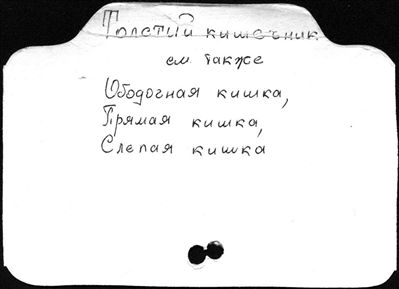 Толстий кишечник
см. также
Ободочная кишка,
Прямая кишка,
Слепая кишка